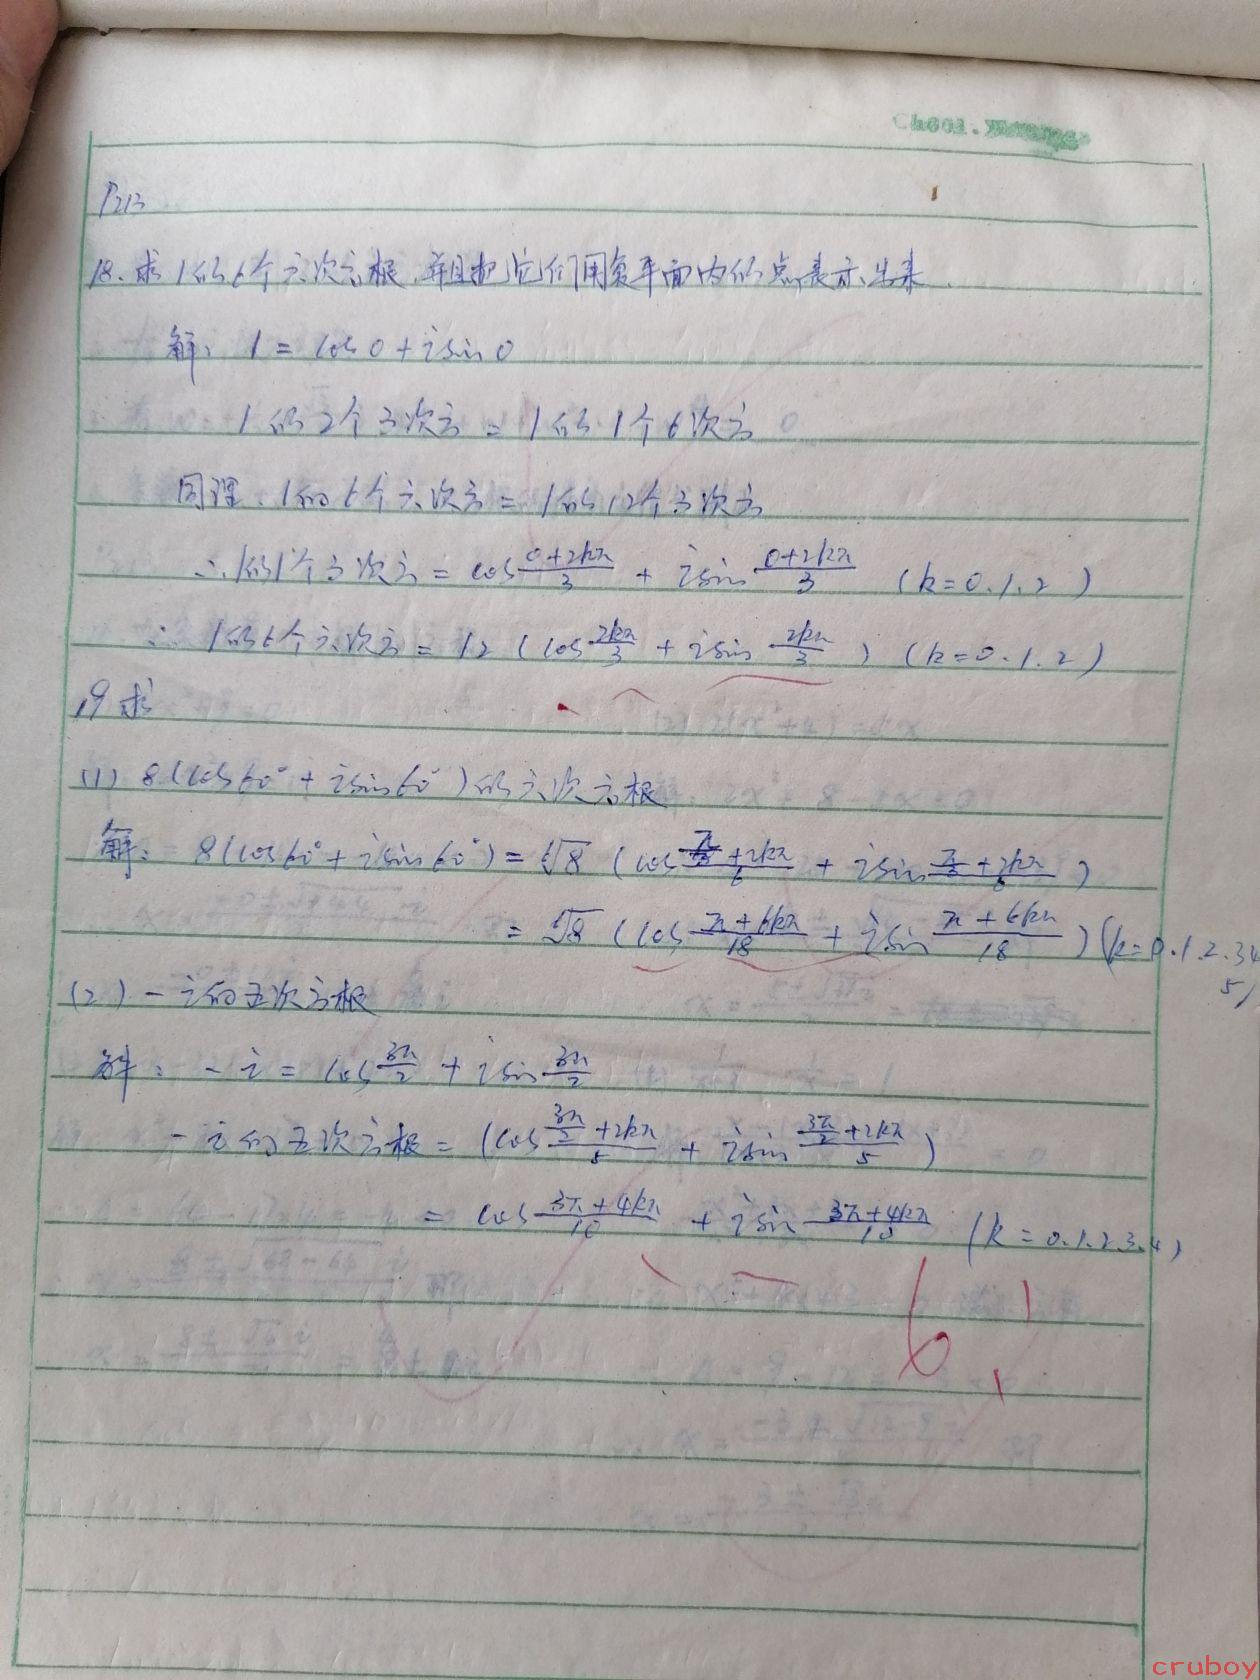 Ch001.
P213
18. 求1的6个六次方根,并且把它们用复平面内的点表示出来.
解: 1 = cos0 + isin0
1的2个三次方 = 1的1个6次方
同理,1的6个六次方 = 1的12个三次方
∴ 1的1个三次方 = cos(0+2kπ)/3 + isin(0+2kπ)/3 (k=0.1.2)
∴ 1的6个六次方 = 12 (cos2kπ/3 + isin2kπ/3) (k=0.1.2)
19 求
(1) 8(cos60° + isin60°)的六次方根
解: 8(cos60° + isin60°) = ⁶√8 (cos(π/3+2kπ)/6 + isin(π/3+2kπ)/6)
= ⁶√8 (cos(π+6kπ)/18 + isin(π+6kπ)/18) (k=0.1.2.3.4.5)
(2) -i的五次方根
解: -i = cos3π/2 + isin3π/2
-i的五次方根 = (cos(3π/2+2kπ)/5 + isin(3π/2+2kπ)/5)
= cos(3π+4kπ)/10 + isin(3π+4kπ)/10 (k=0.1.2.3.4)
6.1
cruboy